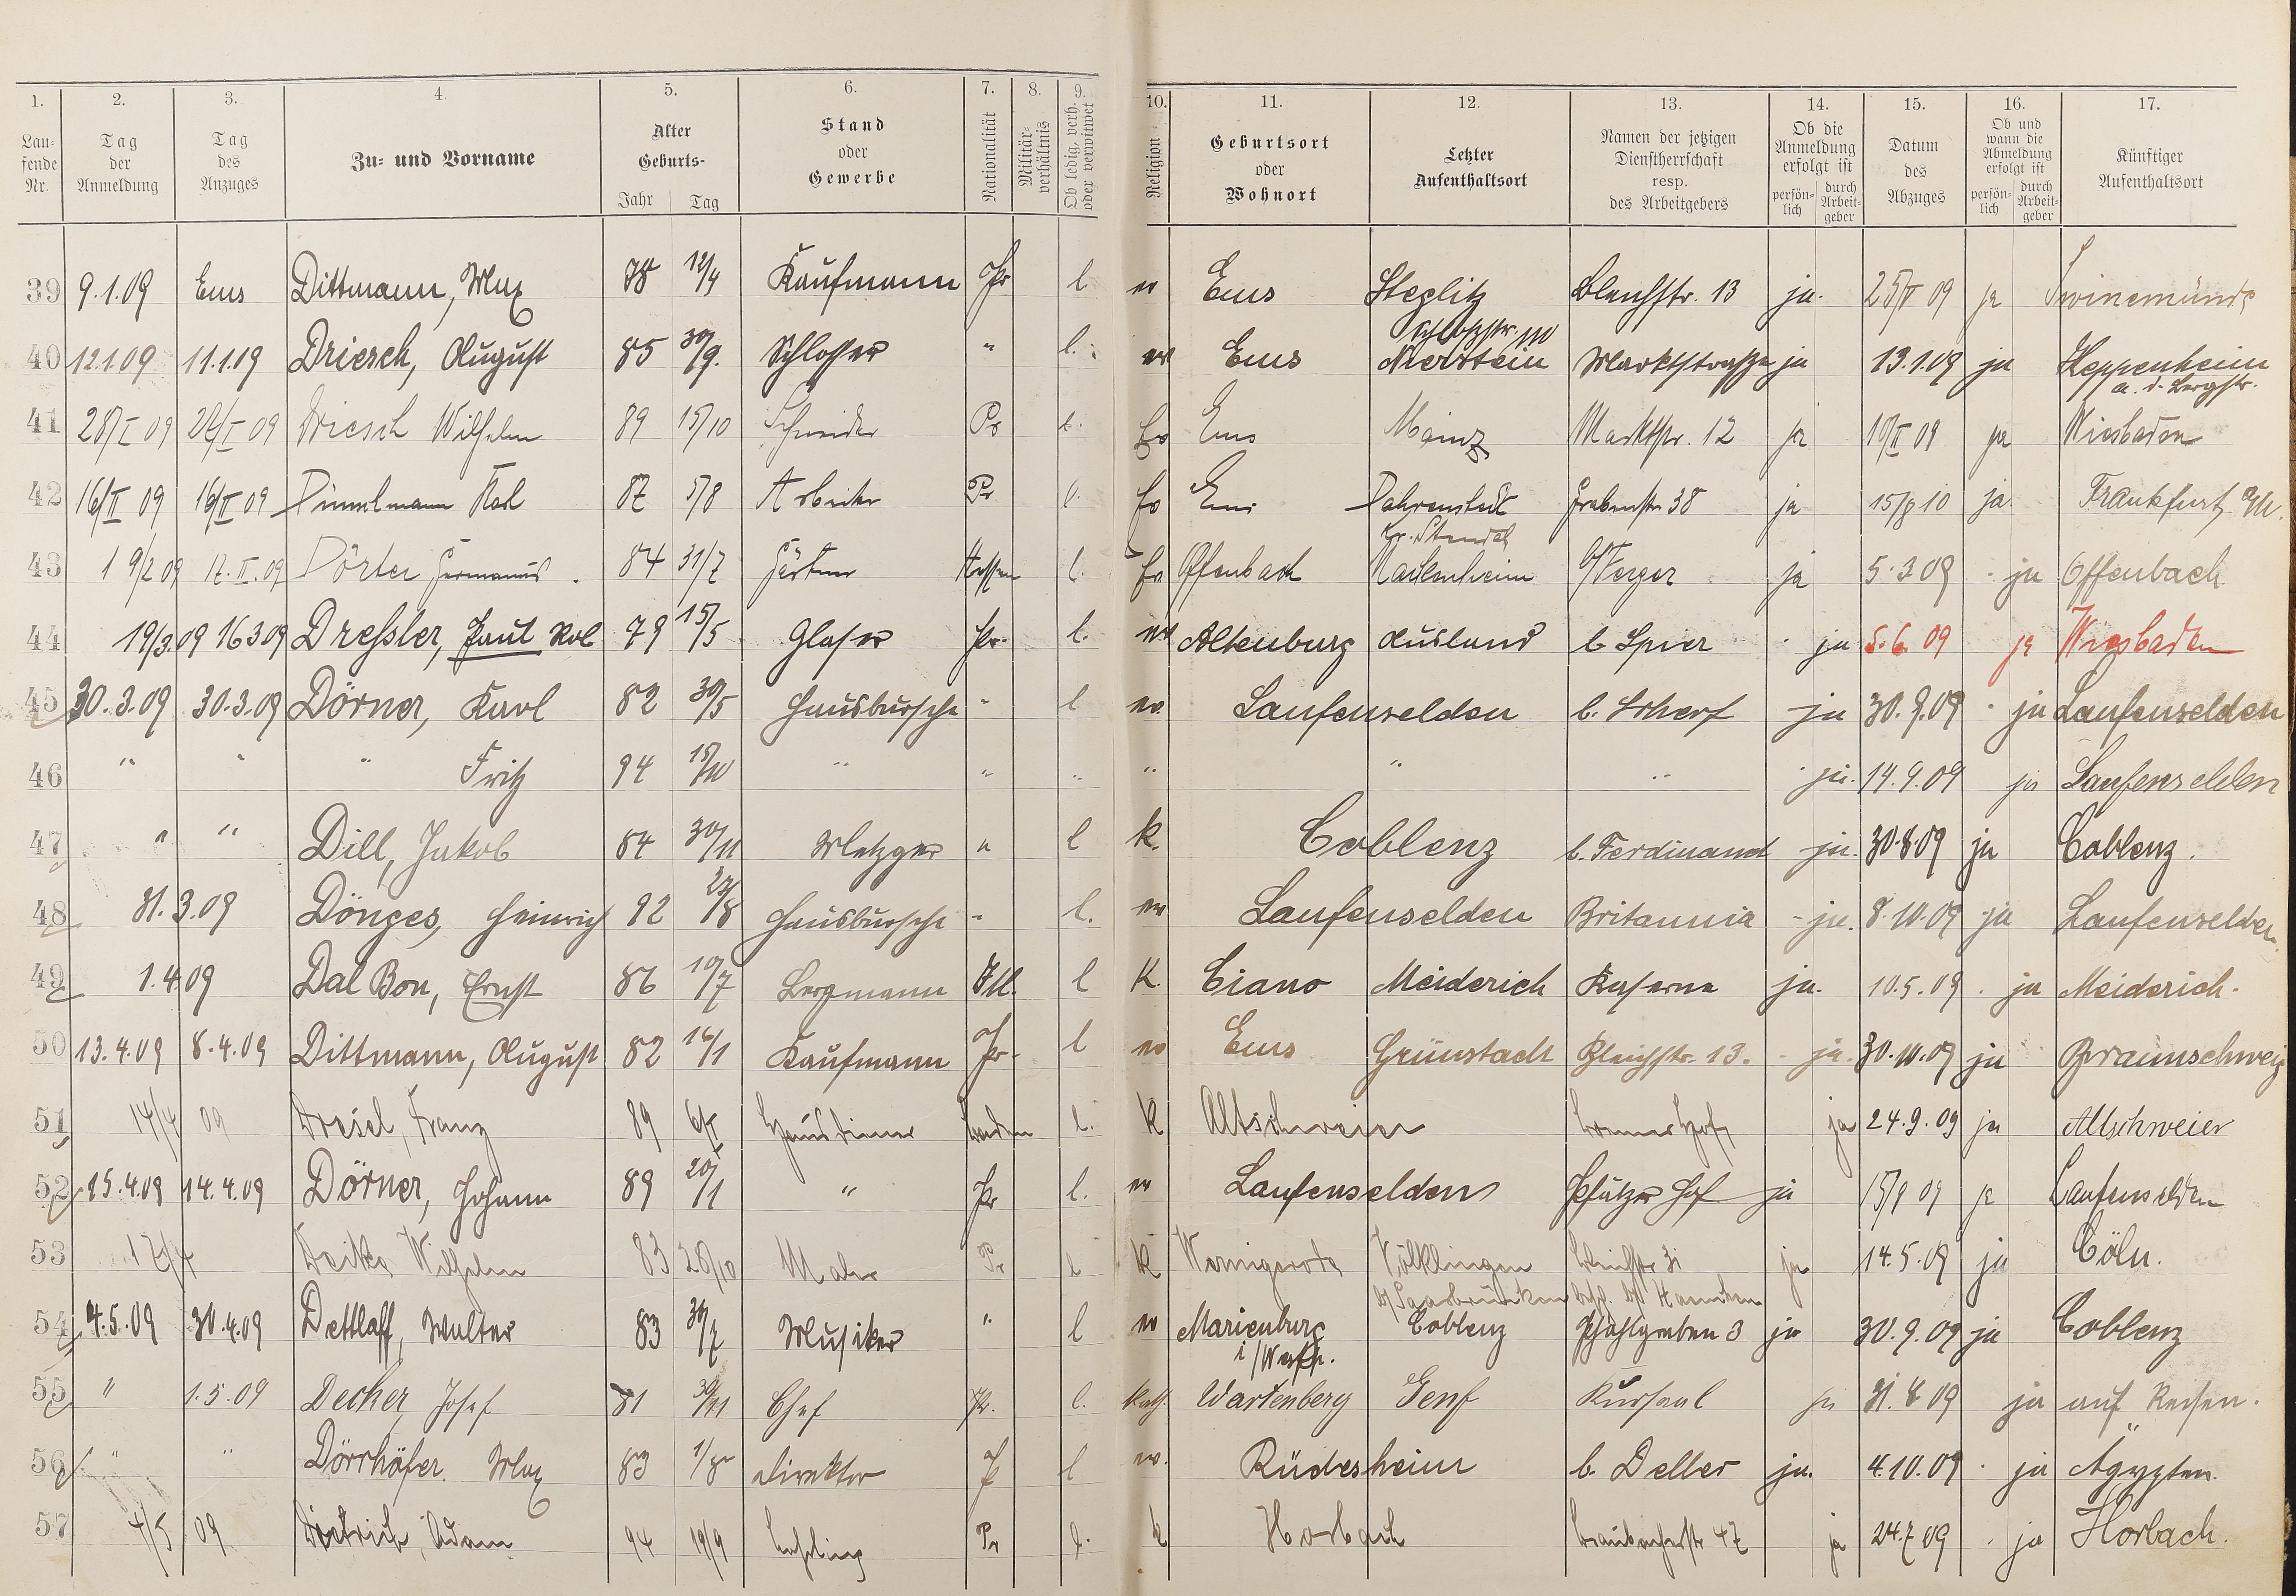 1. 2. 3. 4. 5. 6. 7. 8. 9. 10. 11. 12. 13. 14. 15. 16. 17.
Lau-fende Nr. | Tag der Anmeldung | Tag des Anzuges | Zu- und Vorname | Alter Geburts- Jahr Tag | Stand oder Gewerbe | Nationalität | Militär-verhältnis | Ob ledig, verh. oder verwitwet | Religion | Geburtsort oder Wohnort | Letzter Aufenthaltsort | Namen der jetzigen Dienstherrschaft resp. des Arbeitgebers | Ob die Anmeldung erfolgt ist persön-lich durch Arbeit-geber | Datum des Abzuges | Ob und wann die Abmeldung erfolgt ist persön-lich durch Arbeit-geber | Künftiger Aufenthaltsort
39 9.1.09 Ems Dittmann, Max 78 12/4 Kaufmann Pr l ev Ems Steglitz Bleichstr. 13 ja. 25/V 09 ja Swinemünde
Schloßstr.
40 12.1.09 11.1.09 Driesch, August 85 30/9. Schlosser " l. ev Ems Nierstein Marktstrasse ja 13.1.09 ja Heppenheim
a. d. Bergstr.
41 28/I 09 28/I 09 Driesch Wilhelm 89 15/10 Schneider Pr l. Ev Ems Mainz Marktstr. 12 ja 10/II 09 ja Wiesbaden
42 16/II 09 16/II 09 Karl 87 5/8 Arbeiter Pr l. Ev Ems Dahrenstedt Grabenstr 38 ja 15/8 10 ja. Frankfurt a/M.
Kr. Stendal
43 19/2 09 17.II.09 Dörter Hermanus 84 31/7 Gärtner Hessen l. Ev Offenbach Mackenheim ja 5.3 09 ja Offenbach
44 19/3.09 16 3 09 Dressler, Paul 79 15/5 Glaser Pr. l. ev Altenburg Ausland b. Spier ja 5.6. 09 ja Wiesbaden
45 30.3.09 30.3.09 Dörner, Karl 82 30/5 Hausbursche " l ev. Laufenselden b. Scherf ja 30.9.09 ja Laufenselden
46 " " " Fritz 94 15/10 " " " " " " ja. 14.9.09 ja Laufenselden
47 " " Dill, Jakob 84 30/11 Metzger " l k. Coblenz b. Ferdinand ja. 30.8 09 ja Coblenz.
48 31.3.09 Dönges, Heinrich 92 27/8 Hausbursche " l. ev Laufenselden Britannia ja. 8.10.09 ja Laufenselden.
49 1.4 09 Dal Bon, Ernst 86 10/7 Bergmann Itl. l K. Ciano Meiderich Kaserne ja. 10.5.09. ja Meiderich.
50 13.4.09 8.4.09 Dittmann, August 82 16/1 Kaufmann Pr. l ev Ems Grünstadt Bleichstr. 13. ja. 30.10.09 ja Braunschweig
51 14/4 09 Dresel, Franz 89 Hausdiener Baden l. K Altschweier Hof ja 24.9.09 ja Altschweier
52 15.4.09 14.4.09 Dörner, Johann 89 20/1 " Pr l. ev Laufenselden Pfälzer Hof ja 15/9 09 ja Laufenselden
53 17/4 Wilhelm 83 28/10 Maler Pr l K Wernigerode Völklingen ja 14.5.09 ja Cöln.
b/Saarbrücken
54 4.5.09 30.4.09 Dettlaff, Walter 83 30/7 Musiker " l ev Marienburg Coblenz Pfahlgraben 3 ja 30.9.09 ja Coblenz
i/Westp.
55 " 1.5.09 Decker, Josef 81 30/11 Chef Pr. l. kath. Wartenberg Genf Kursaal ja 31.8 09 ja auf Reisen.
56 " " Dörrhöfer. Max 83 1/8 Direktor P l ev. Rüdesheim b. Deller ja. 4.10.09 ja Ägypten.
57 4/5 09 Dietrich, Adam 94 19/9 Lehrling Pr l. k Horbach Braubacherstr 47 ja 24.7 09 ja Horbach.